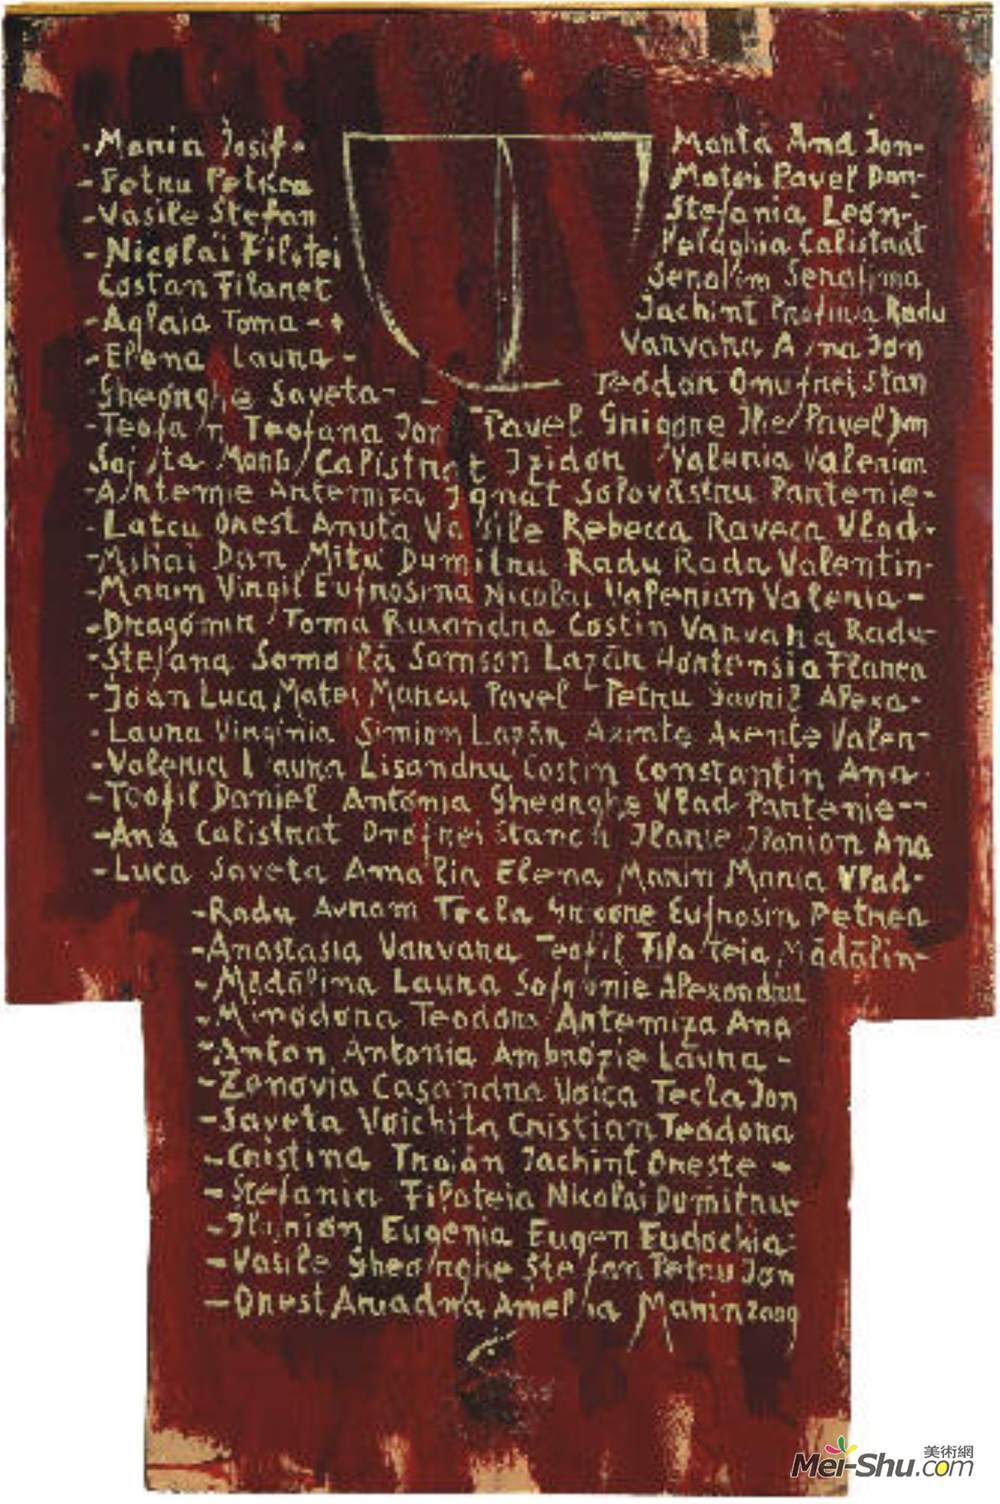 -Maria Josif-
Marta Ana Jon-
-Petru Petrea
Matei Pavel Dan-
-Vasile Stefan
Stefania Leon-
-Nicolai Filotei
Pelaghia Calistrat
Costan Filaret
Serafim Serafima
-Aglaia Toma-
Jachint Radu
-Elena Laura-
Varvara Jon
-Gheorghe Saveta-
Teodor Onufrei Stan
-Teofan Teofana Jon Pavel Grigore Ilie Pavel Jon
Calistrat Izidor Valeria Valerian
-Artemie Artemiza Ignat Solovăstru Pantenie-
-Latcu Onest Anuta Vasile Rebecca Raveca Vlad-
-Mihai Dan Mitu Dumitru Radu Rada Valentin-
-Marin Virgil Eufrosina Nicolai Valerian Valeria-
-Dragomir Toma Ruxandra Costin Varvara Radu-
-Ştefana Samoilă Samson Lazăr Hortensia Florea
-Joan Luca Matei Marcu Pavel Petru Gavril Alexa-
-Laura Virginia Simion Lazăr Axente Valer-
-Valeria Laura Lisandru Costin Constantin Ana-
-Teofil Daniel Antonia Gheorghe Vlad Pantenie--
-Ana Calistrat Onofrei Ilarie Ilarion Ana
-Luca Saveta Amalia Elena Marin Maria Vlad-
-Radu Avram Tecla Grigore Eufrosin Petrea
-Anastasia Varvara Teofil Filoteia Mădălin-
-Mădălina Laura Sofronie Alexandru
-Minodora Teodora Artemiza Ana
-Anton Antonia Ambrozie Laura-
-Zenovia Casandra Voica Tecla Jon
-Saveta Voichita Cristian Teodora
-Cristina Traian Jachint Oreste-
-Stefania Filoteia Nicolai Dumitru
-Ilarion Eugenia Eugen Eudochia
-Vasile Gheorghe Ştefan Petru Jon
-Onest Ariadna Amelia Marin 2009
美術網
Mei-Shu.com